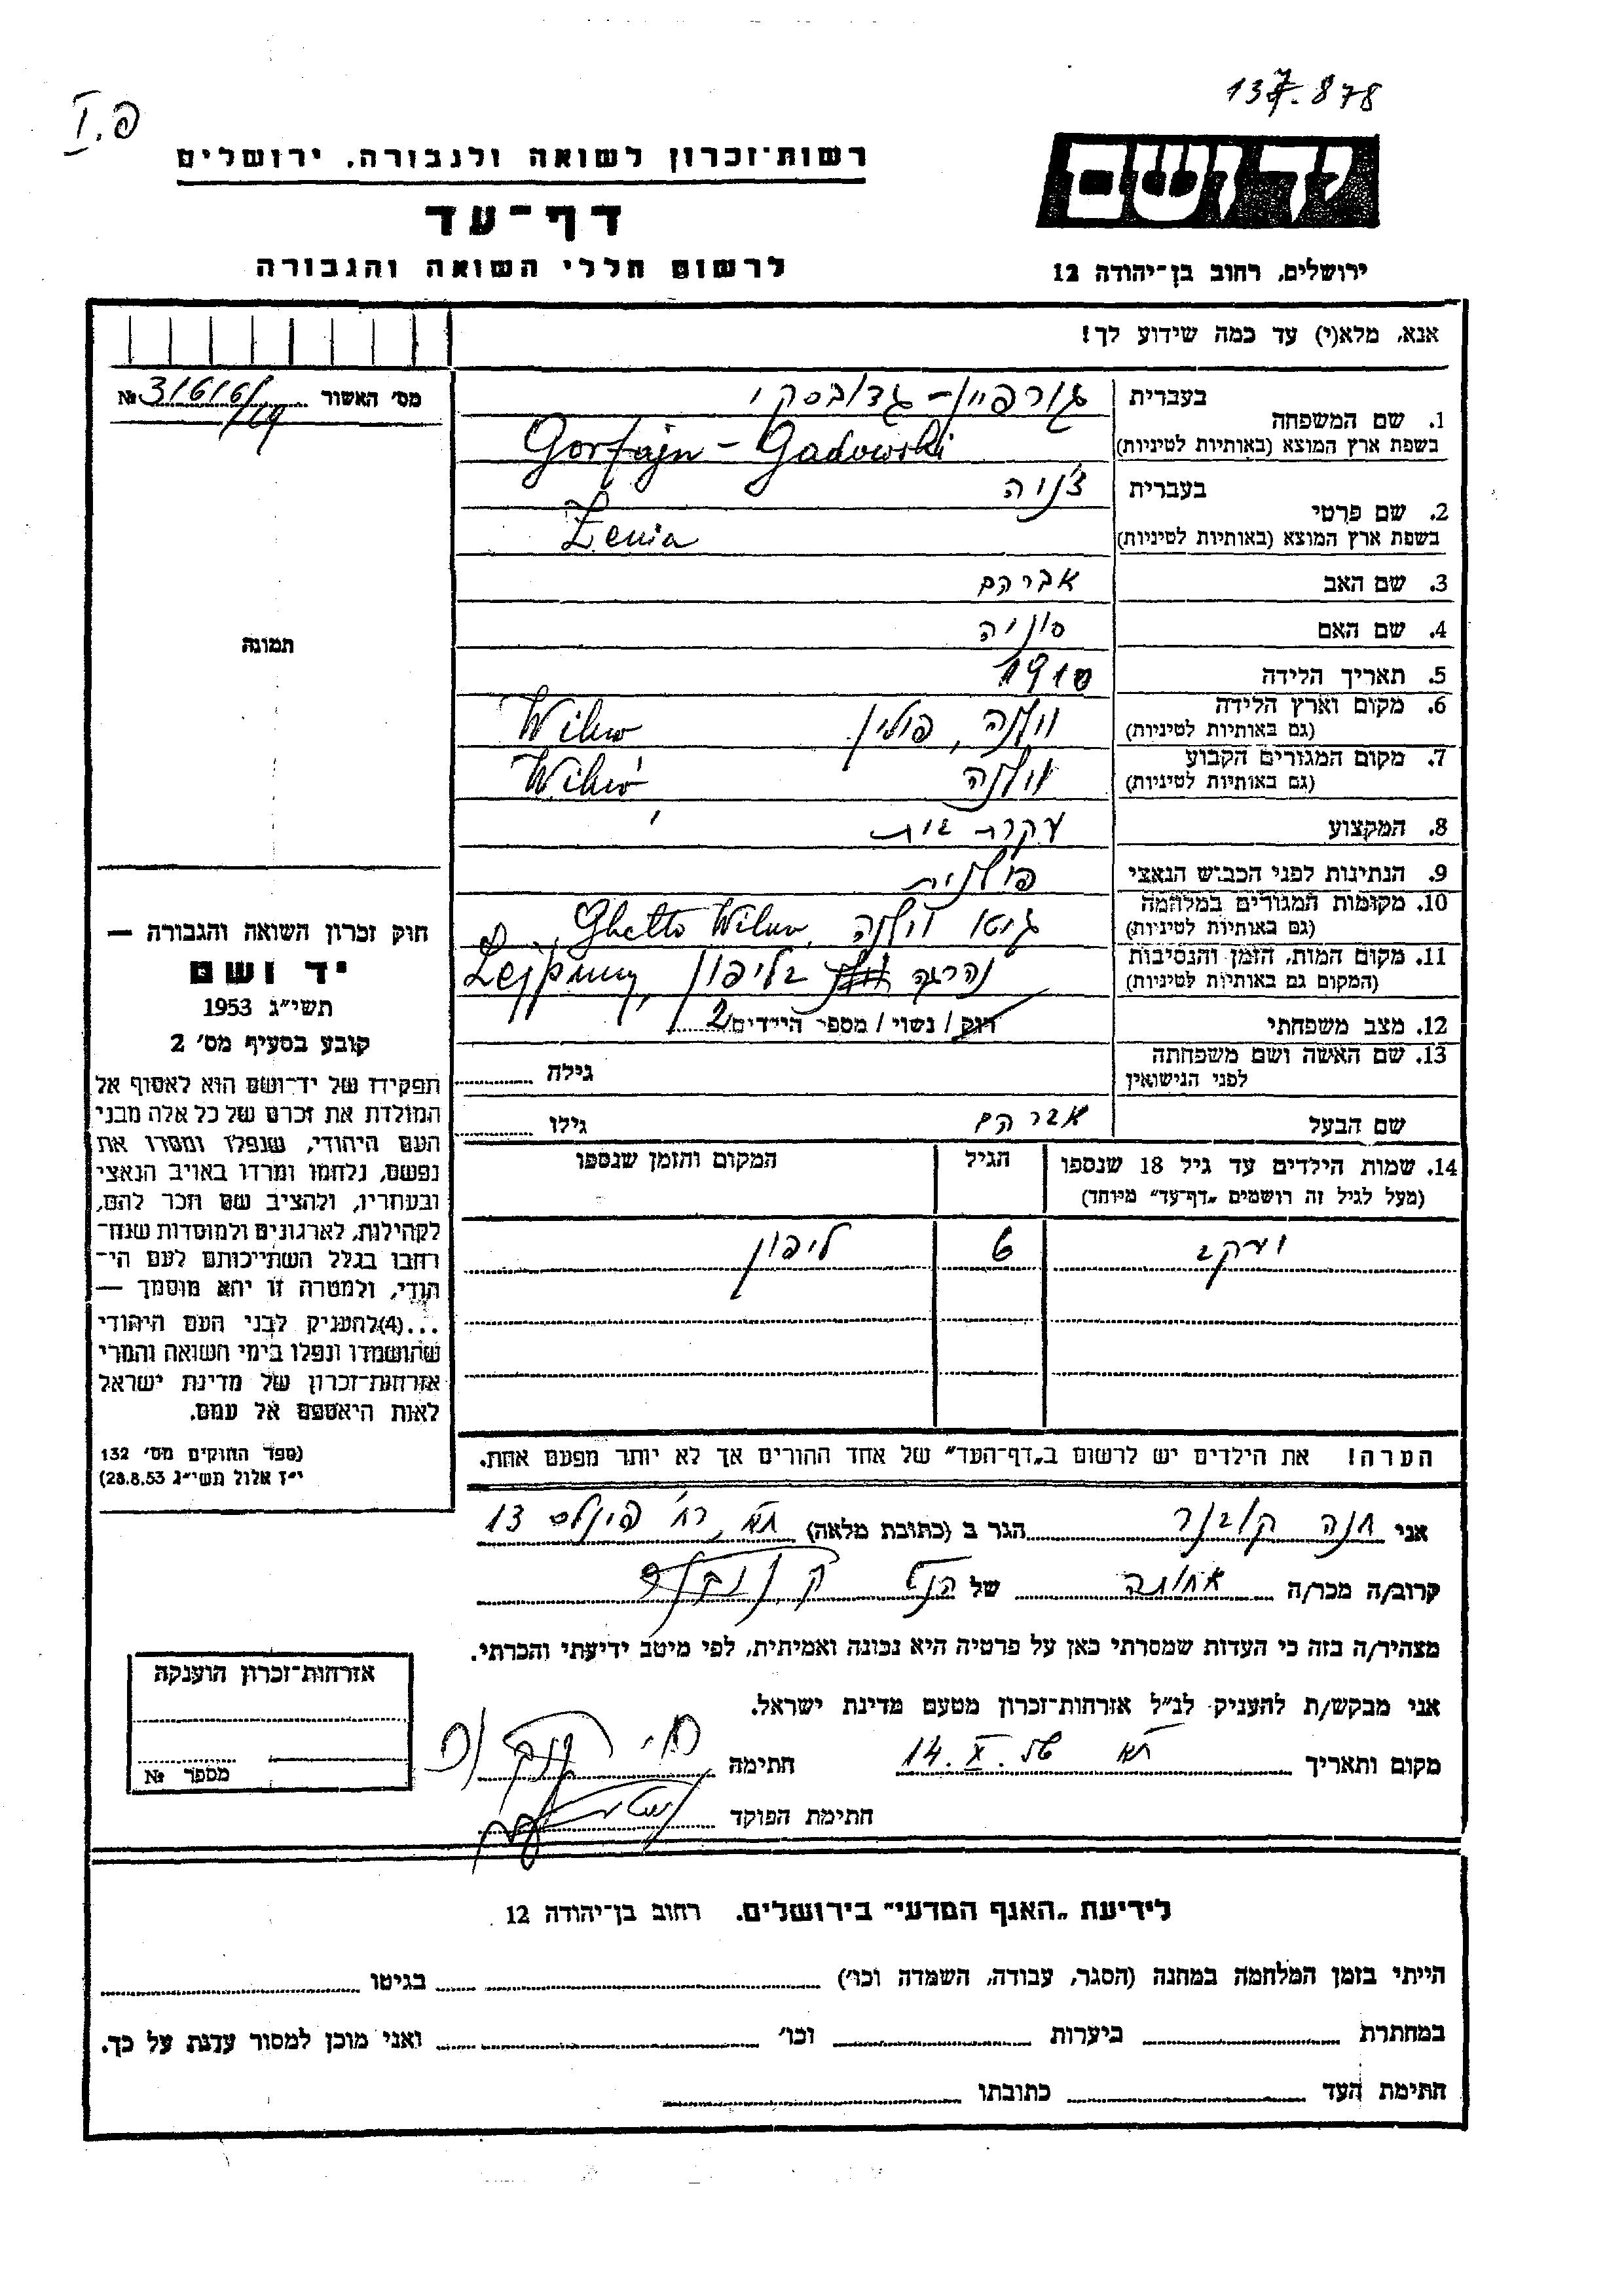 137.878
I.פ
רשות־זכרון לשואה ולגבורה, ירושלים
יד ושם
דף־עד
לרשום חללי השואה והגבורה
ירושלים, רחוב בן־יהודה 12
אנא, מלא(י) עד כמה שידוע לך!
מס' האשור № 31616/19
1. שם המשפחה בעברית גורפיין - גדובסקי
בשפת ארץ המוצא (באותיות לטיניות) Gorfajn - Gadowski
2. שם פרטי בעברית ז'ניה
בשפת ארץ המוצא (באותיות לטיניות) Żenia
3. שם האב אברהם
4. שם האם סוניה
תמונה
5. תאריך הלידה 1910
6. מקום וארץ הלידה וילנה, פולין Wilno
(גם באותיות לטיניות)
7. מקום המגורים הקבוע וילנה Wilno
(גם באותיות לטיניות)
8. המקצוע עקרת בית
9. הנתינות לפני הכבוש הנאצי פולנית
10. מקומות המגורים במלחמה גיטו וילנה, Ghetto Wilno
(גם באותיות לטיניות)
11. מקום המות, הזמן והנסיבות נהרגה בליפון
(המקום גם באותיות לטיניות)
12. מצב משפחתי רוק / נשוי / מספר הילדים 2
13. שם האשה ושם משפחתה גילה
לפני הנישואין
שם הבעל אברהם גילו
14. שמות הילדים עד גיל 18 שנספו הגיל המקום והזמן שנספו
(מעל לגיל זה רושמים „דף־עד" מיוחד)
יעקב 6 ליפון
הערה! את הילדים יש לרשום ב„דף־העד" של אחד ההורים אך לא יותר מפעם אחת.
חוק זכרון השואה והגבורה —
יד ושם
תשי"ג 1953
קובע בסעיף מס' 2
תפקידו של יד־ושם הוא לאסוף אל
המולדת את זכרם של כל אלה מבני
העם היהודי, שנפלו ומסרו את
נפשם, נלחמו ומרדו באויב הנאצי
ובעוזריו, ולהציב שם וזכר להם,
לקהילות, לארגונים ולמוסדות שנח־
רבו בגלל השתייכותם לעם הי־
הודי, ולמטרה זו יהא מוסמך —
...(4) להעניק לבני העם היהודי
שהושמדו ונפלו בימי השואה והמרי
אזרחות־זכרון של מדינת ישראל
לאות היאספם אל עמם.
(ספר החוקים מס' 132
י"ז אלול תשי"ג 28.8.53)
אני חנה קובנר הגר ב (כתובת מלאה) תא, רח' פינלס 13
קרוב/ה מכר/ה אחותה של
מצהיר/ה בזה כי העדות שמסרתי כאן על פרטיה היא נכונה ואמיתית, לפי מיטב ידיעתי והכרתי.
אני מבקש/ת להעניק לנ"ל אזרחות־זכרון מטעם מדינת ישראל.
מקום ותאריך תא 14.X. חתימה
חתימת הפוקד
אזרחות־זכרון הוענקה
מספר №
לידיעת „האגף המדעי" בירושלים. רחוב בן־יהודה 12
הייתי בזמן המלחמה במחנה (הסגר, עבודה, השמדה וכו') בגיטו
במחתרת ביערות וכו' ואני מוכן למסור עדות על כך.
חתימת העד כתובתו